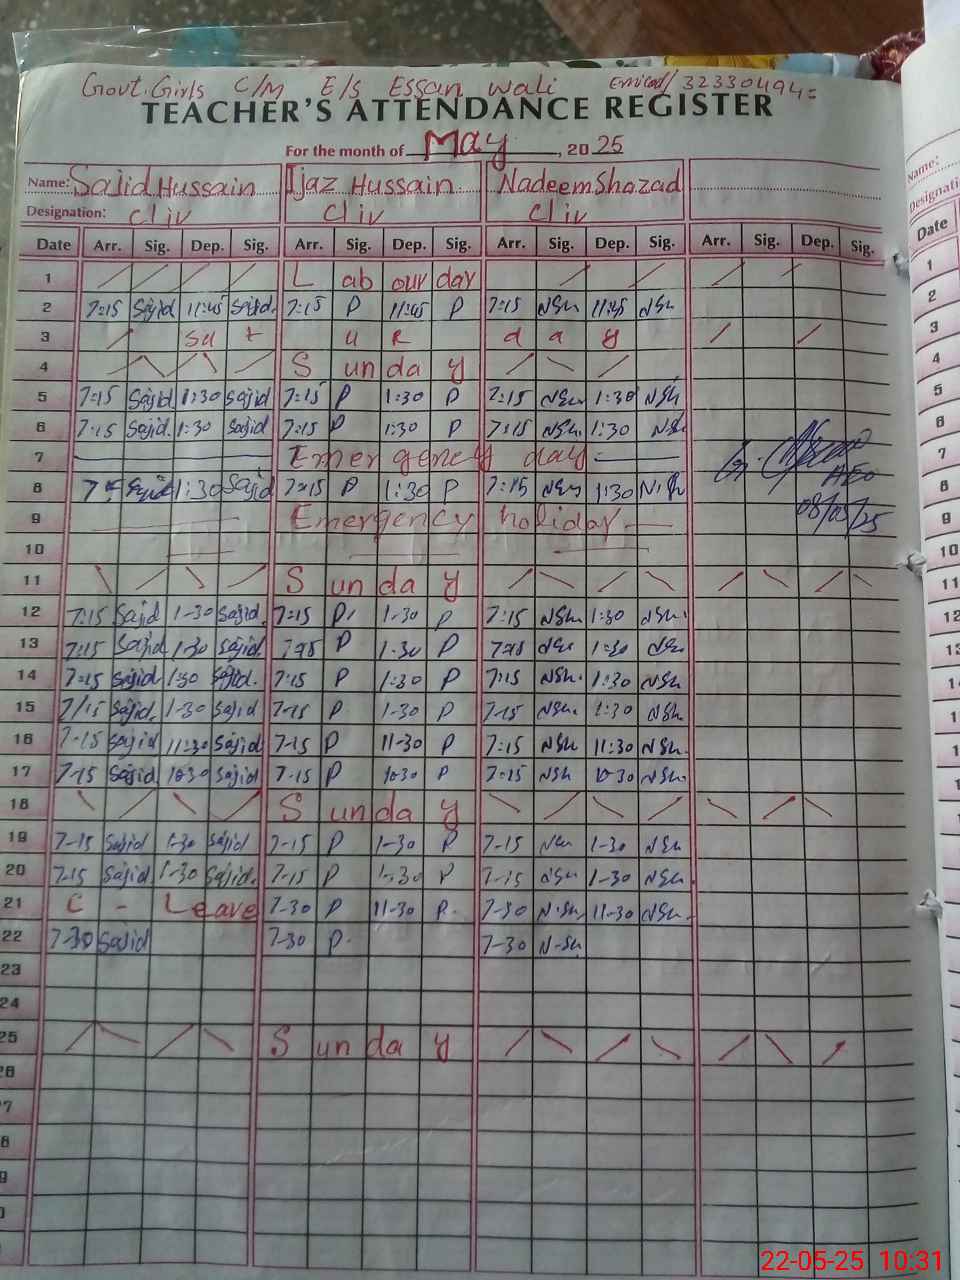 Govt. Girls C/M E/S Essan Wali Emiscod/ 32330494=
TEACHER'S ATTENDANCE REGISTER
For the month of May, 2025
Name: Sajid Hussain Ijaz Hussain Nadeem Shazad
Designation: Cl iv Cl iv Cl iv
Date Arr. Sig. Dep. Sig. Arr. Sig. Dep. Sig. Arr. Sig. Dep. Sig. Arr. Sig. Dep. Sig.
1 Labour day
2 7:15 Sajid 11:45 Sajid 7:15 P 11:45 P 7:15 NSh 11:45 NSh
3 Saturday
4 Sunday
5 7:15 Sajid 1:30 Sajid 7:15 P 1:30 P 7:15 NSh 1:30 NSh
6 7:15 Sajid 1:30 Sajid 7:15 P 1:30 P 7:15 NSh 1:30 NSh
7 Emergency day
8 Sajid 1:30 Sajid 7:15 P 1:30 P 7:15 NSh 1:30 N.Sh AEO
9 Emergency holiday 08/05/25
10
11 Sunday
12 7:15 Sajid 1-30 Sajid 7:15 P 1-30 P 7:15 NSh 1:30 NSh
13 7:15 Sajid 1-30 Sajid P 1-30 P NSh 1:30 NSh
14 7:15 Sajid 1:30 Sajid 7:15 P 1:30 P 7:15 NSh 1:30 NSh
15 7/15 Sajid 1-30 Sajid 7-15 P 1-30 P 7-15 NSh 1:30 NSh
16 7-15 Sajid 11:30 Sajid 7-15 P 11-30 P 7:15 NSh 11:30 NSh
17 7-15 Sajid 10:30 Sajid 7-15 P 10:30 P 7:15 NSh 10-30 NSh
18 Sunday
19 7-15 Sajid 1-30 Sajid 7-15 P 1-30 P 7-15 NSh 1-30 NSh
20 7-15 Sajid 1-30 Sajid 7-15 P 1-30 P 7-15 NSh 1-30 NSh
21 C - Leave 7-30 P 11-30 P 7-30 N.Sh 11-30 NSh
22 7-30 Sajid 7-30 P 7-30 N-Sh
23
24
25 Sunday
26
7
8
9
0
Name:
Designati
Date
1
2
3
4
5
6
7
8
9
10
11
12
13
14
1
1
22-05-25 10:31